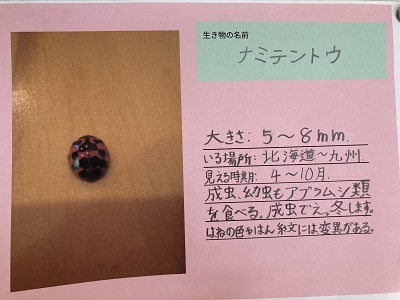 生き物の名前
ナミテントウ
大きさ: 5〜8mm.
いる場所: 北海道〜九州
見える時期: 4〜10月.
成虫、幼虫もアブラムシ類
を食べる。成虫でえっ冬します。
はねの色やはん紋には変異がある。